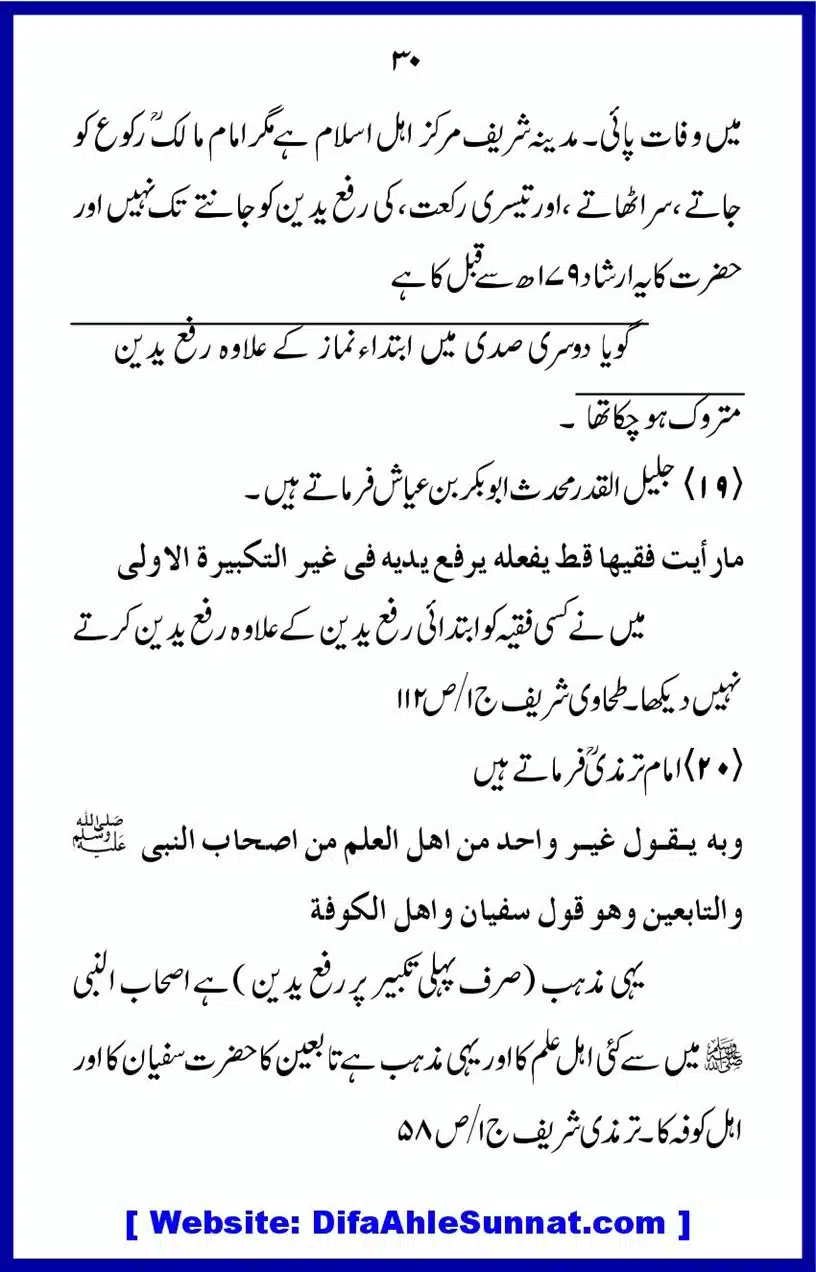 ۳۰
میں وفات پائی۔ مدینہ شریف مرکز اہل اسلام ہے مگر امام مالکؒ رکوع کو
جاتے ،سر اٹھاتے ،اور تیسری رکعت، کی رفع یدین کو جانتے تک نہیں اور
حضرت کا یہ ارشاد ۱۷۹ھ سے قبل کا ہے
گویا دوسری صدی میں ابتداء نماز کے علاوہ رفع یدین
متروک ہو چکا تھا ۔
﴿۱۹﴾ جلیل القدر محدث ابوبکر بن عیاش فرماتے ہیں ۔
مارأيت فقيها قط يفعله يرفع يديه فى غير التكبيرة الاولى
میں نے کسی فقیہ کو ابتدائی رفع یدین کے علاوہ رفع یدین کرتے
نہیں دیکھا۔ طحاوی شریف ج۱/ص۱۱۲
﴿۲۰﴾ امام ترمذیؒ فرماتے ہیں
وبه يقول غير واحد من اهل العلم من اصحاب النبى ﷺ
والتابعين وهو قول سفيان واهل الكوفة
یہی مذہب (صرف پہلی تکبیر پر رفع یدین ) ہے اصحاب النبی
ﷺ میں سے کئی اہل علم کا اور یہی مذہب ہے تابعین کا حضرت سفیان کا اور
اہل کوفہ کا۔ ترمذی شریف ج۱/ص۵۸
[ Website: DifaAhleSunnat.com ]